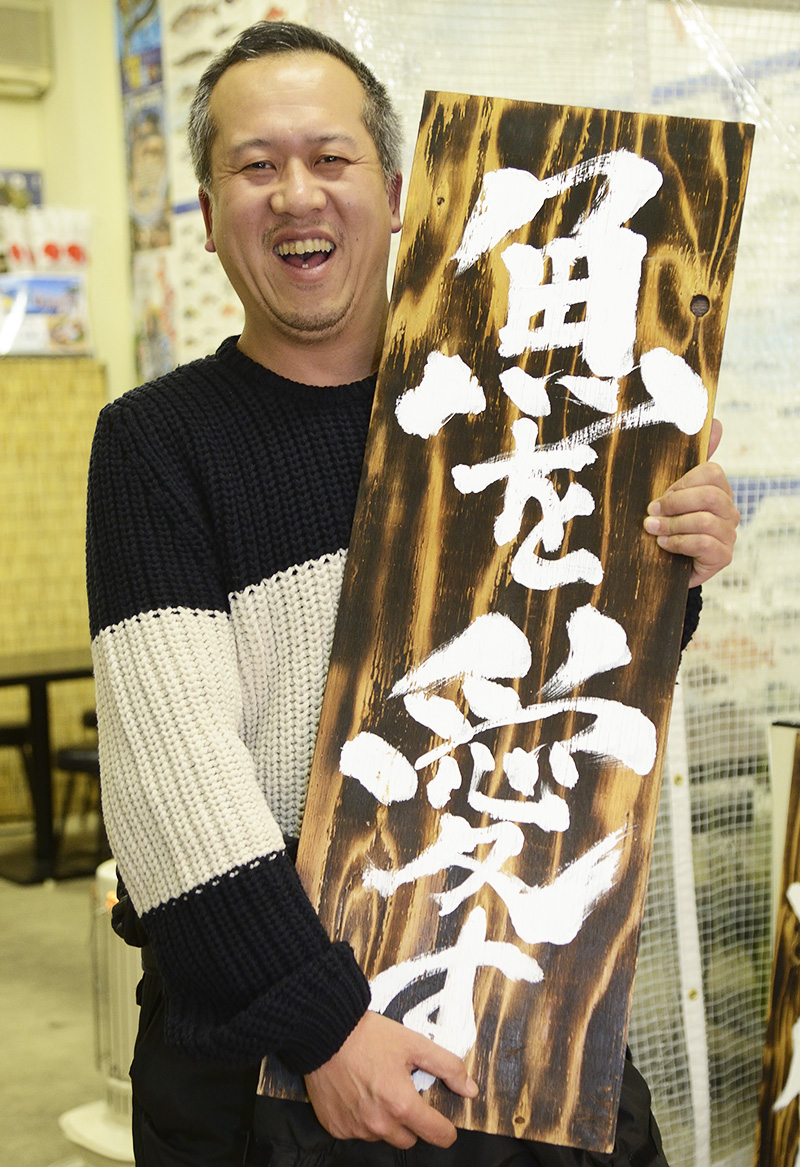 魚を愛す